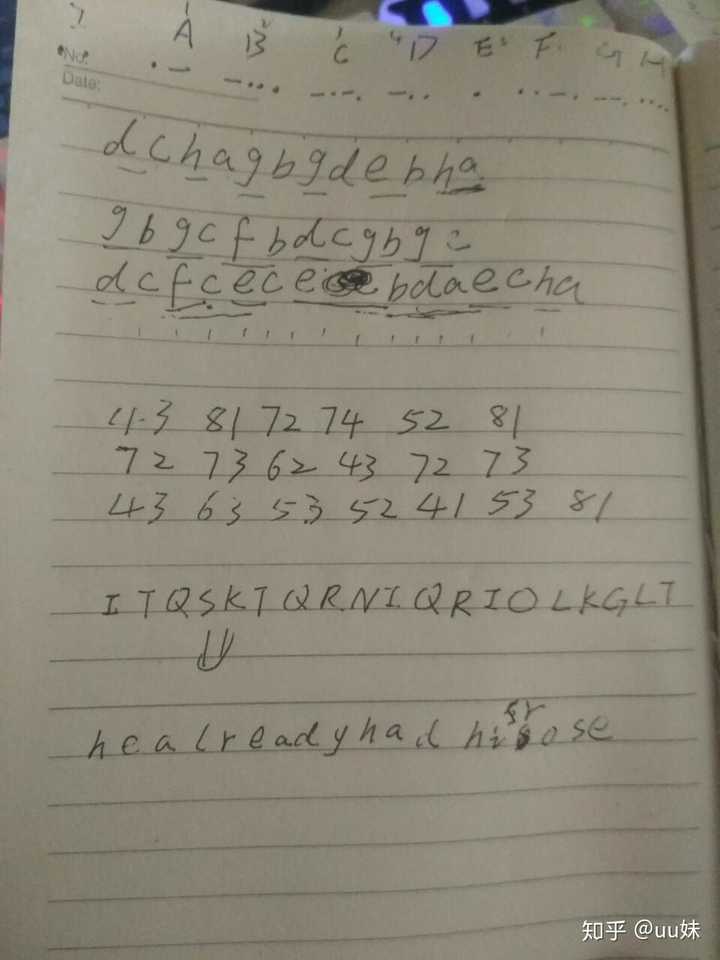 A B C D E F G H
No:
Date:
·— —··· —·—· —·· · ··—· ——· ····
dchagbgdebha
gbgcfbdcgbgc
dcfcece bdaecha
43 81 72 74 52 81
72 73 62 43 72 73
43 63 53 52 41 53 81
ITQSKTQRNIQRIOLKGLT
healreadyhad hi ose
知乎 @uu妹